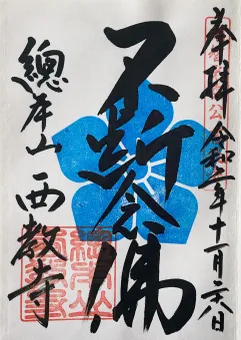 奉拝 令和二年十一月二八日
不断念佛
總本山 西教寺